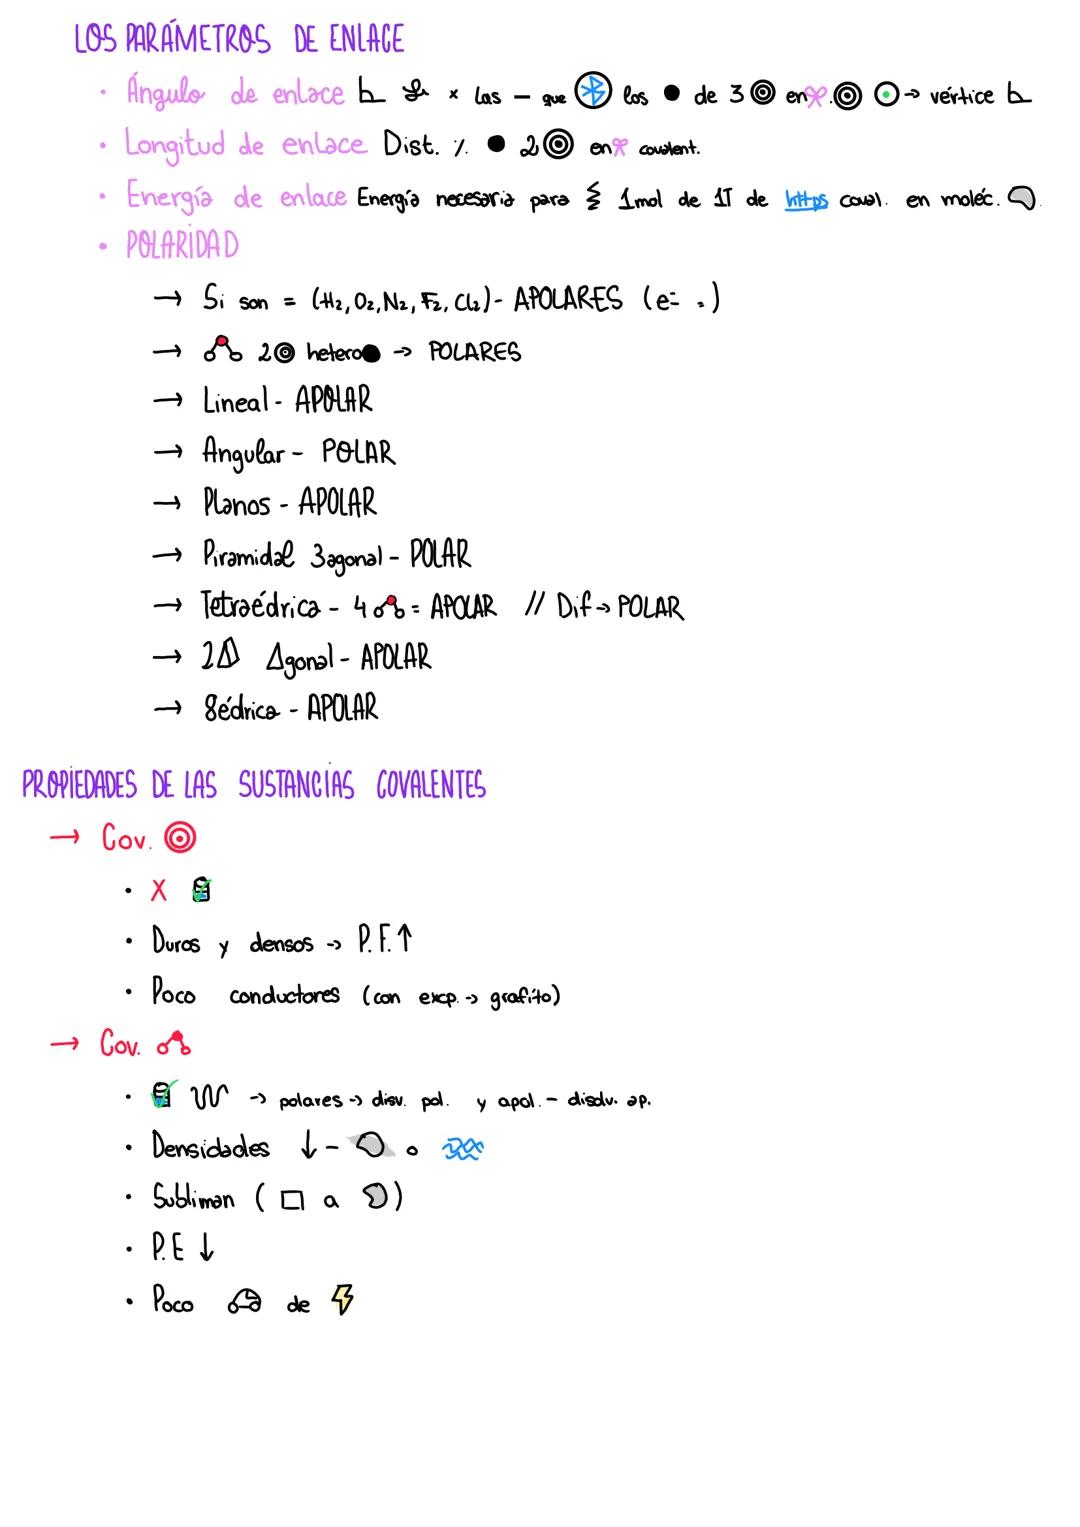 LOS PARÁMETROS DE ENLACE
• Ángulo de enlace x las — que los ● de 3 en vértice
• Longitud de enlace Dist. ٪ ● 2 en covalent.
• Energía de enlace Energía necesaria para 1mol de 1T de https coval. en moléc.
• POLARIDAD
→ Si son = (H₂, O₂, N₂, F₂, Cl₂) - APOLARES (e⁻ = )
→ 2 hetero● → POLARES
→ Lineal - APOLAR
→ Angular - POLAR
→ Planos - APOLAR
→ Piramidal 3agonal - POLAR
→ Tetraédrica - 4 = APOLAR // Dif → POLAR
→ 2Δ Δgonal - APOLAR
→ 8édrica - APOLAR
PROPIEDADES DE LAS SUSTANCIAS COVALENTES
→ Cov.
• X
• Duros y densos → P.F.↑
• Poco conductores (con excp. → grafito)
→ Cov.
• → polares → disv. pol. y apol. - disolv. ap.
• Densidades ↓ - o
• Subliman ( □ a )
• P.E ↓
• Poco de